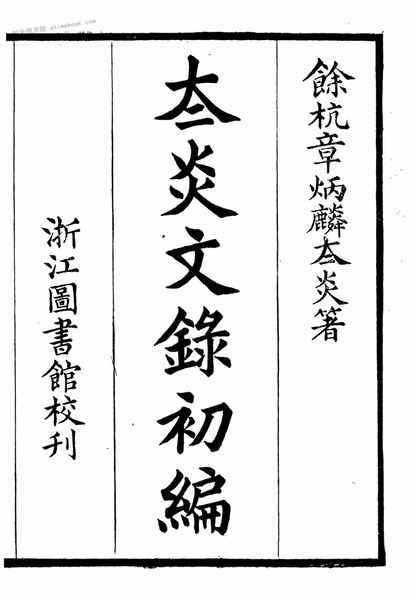 餘杭章炳麟𡘙炎箸
𡘙炎文錄初編
浙江圖書館校刊